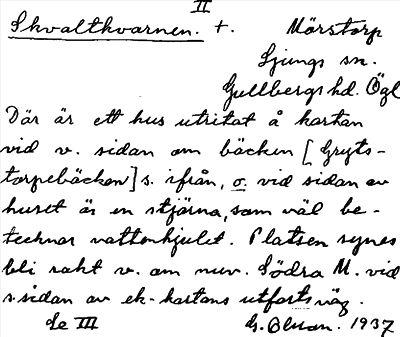 II
Skvaltkvarnen. +. Mörstorp
Ljungs sn.
Gullbergs hd. Ögl
Där är ett hus utritat å kartan
vid v. sidan om bäcken [Gryts-
torpebäcken] s. ifrån, o. vid sidan av
huset är en stjärna, som väl be-
tecknar vattenhjulet. Platsen synes
bli rakt v. om nuv. Södra M. vid
s. sidan av ek-kartans utfartsväg.
Se III G. Olsson. 1937